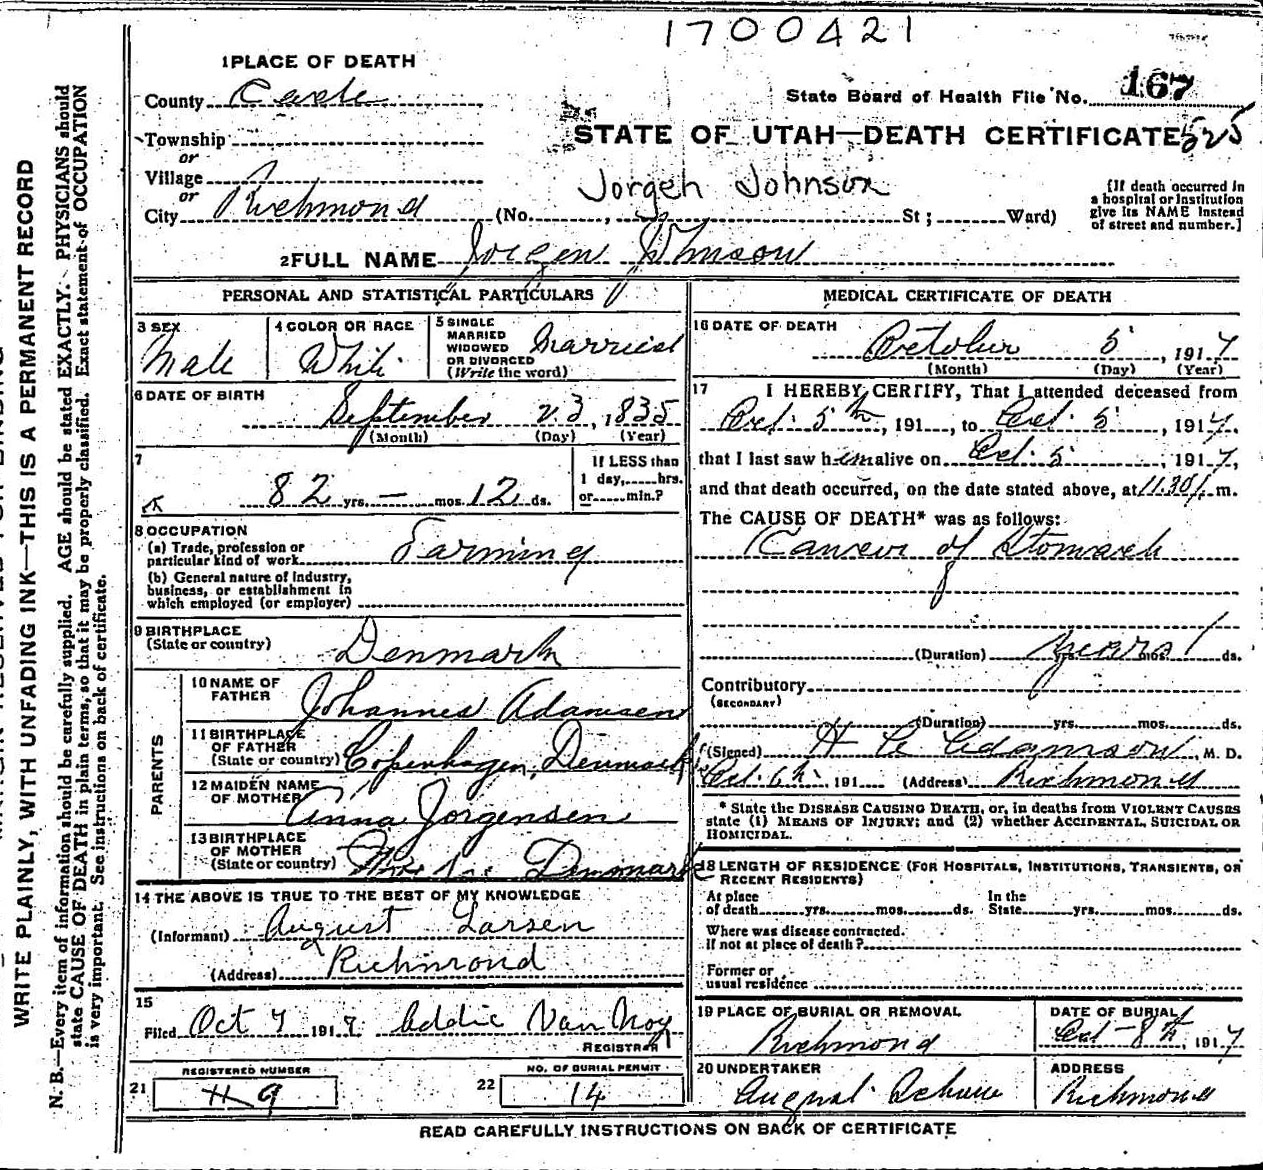 1700421
1 PLACE OF DEATH
County Cache
State Board of Health File No. 167
Township
or
STATE OF UTAH—DEATH CERTIFICATE 525
Village
or
Jorgen Johnson
City Richmond (No. , St ; Ward)
[If death occurred in
a hospital or institution
give its NAME instead
of street and number.]
2 FULL NAME Jorgen Johnson
PERSONAL AND STATISTICAL PARTICULARS
3 SEX
Male
4 COLOR OR RACE
White
5 SINGLE
MARRIED
WIDOWED
OR DIVORCED
(Write the word)
Married
6 DATE OF BIRTH
September 23, 1835
(Month) (Day) (Year)
7
82 yrs. — mos. 12 ds.
If LESS than
1 day, hrs.
or min.?
8 OCCUPATION
(a) Trade, profession or
particular kind of work Farming
(b) General nature of industry,
business, or establishment in
which employed (or employer)
9 BIRTHPLACE
(State or country) Denmark
PARENTS
10 NAME OF
FATHER Johannes Adamsen
11 BIRTHPLACE
OF FATHER
(State or country) Copenhagen, Denmark
12 MAIDEN NAME
OF MOTHER Anna Jorgensen
13 BIRTHPLACE
OF MOTHER
(State or country) Denmark
14 THE ABOVE IS TRUE TO THE BEST OF MY KNOWLEDGE
(Informant) August Larsen
(Address) Richmond
15
Filed Oct 7 1917 Addie Van Noy
REGISTRAR
21 REGISTERED NUMBER
22 NO. OF BURIAL PERMIT
14
MEDICAL CERTIFICATE OF DEATH
16 DATE OF DEATH
October 5, 1917
(Month) (Day) (Year)
17 I HEREBY CERTIFY, That I attended deceased from
Oct. 5th, 191 , to Oct. 5, 1917,
that I last saw him alive on Oct. 5, 1917,
and that death occurred, on the date stated above, at 11.30 m.
The CAUSE OF DEATH* was as follows:
Cancer of Stomach
(Duration) years yrs. mos. 1 ds.
Contributory
(SECONDARY)
(Duration) yrs. mos. ds.
(Signed) H C Adamson, M. D.
Oct. 6th, 191 (Address) Richmond
* State the DISEASE CAUSING DEATH, or, in deaths from VIOLENT CAUSES
state (1) MEANS OF INJURY; and (2) whether ACCIDENTAL, SUICIDAL OR
HOMICIDAL.
18 LENGTH OF RESIDENCE (FOR HOSPITALS, INSTITUTIONS, TRANSIENTS, OR
RECENT RESIDENTS)
At place
of death yrs. mos. ds.
In the
State yrs. mos. ds.
Where was disease contracted
if not at place of death?
Former or
usual residence
19 PLACE OF BURIAL OR REMOVAL
Richmond
DATE OF BURIAL
Oct - 8th, 1917
20 UNDERTAKER
August
ADDRESS
Richmond
READ CAREFULLY INSTRUCTIONS ON BACK OF CERTIFICATE
WRITE PLAINLY, WITH UNFADING INK—THIS IS A PERMANENT RECORD
N. B.—Every item of information should be carefully supplied. AGE should be stated EXACTLY. PHYSICIANS should
state CAUSE OF DEATH in plain terms, so that it may be properly classified. Exact statement of OCCUPATION
is very important. See instructions on back of certificate.